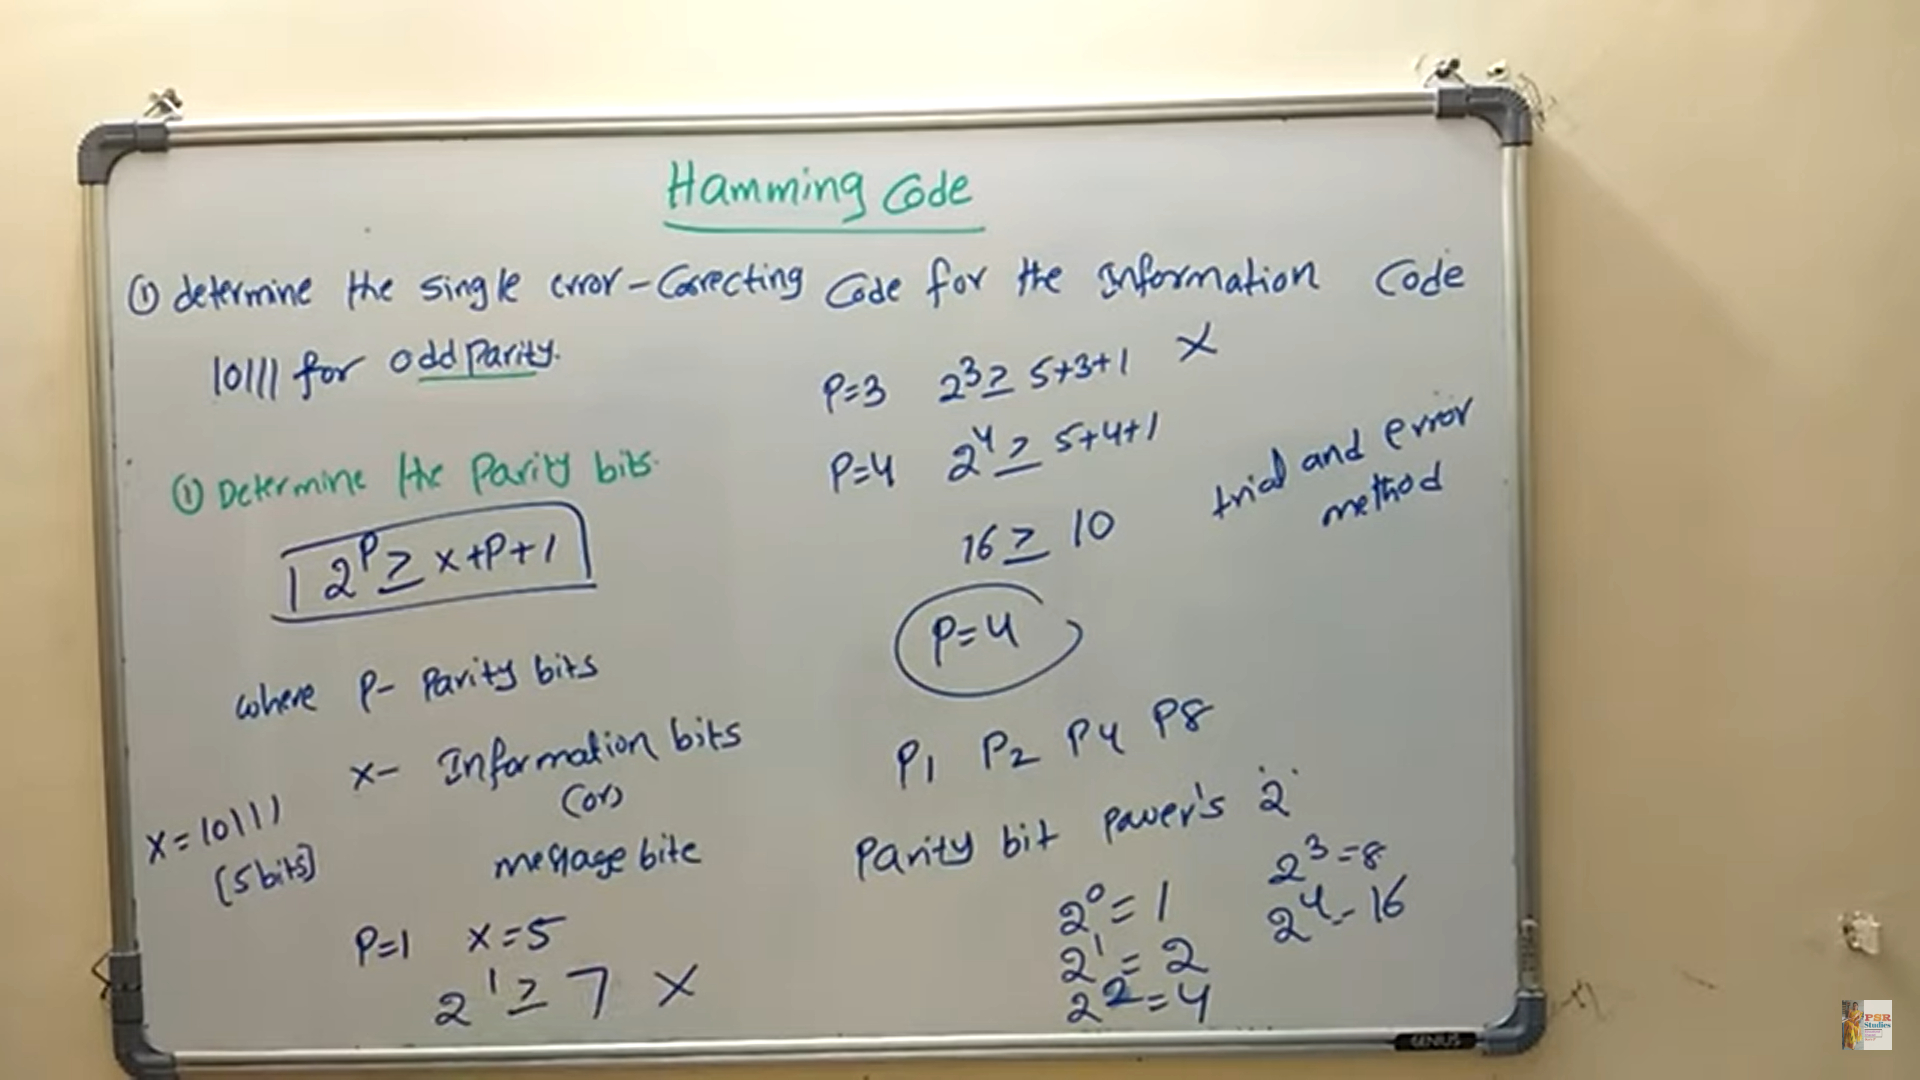 Hamming Code
① determine the single error-Correcting Code for the Information Code
10111 for odd parity.
① Determine the Parity bits.
2^P ≥ x+P+1
where P- Parity bits
x- Information bits
(or)
message bite
x=10111
(5 bits)
P=1 x=5
2^1 ≥ 7 X
P=3 2^3 ≥ 5+3+1 X
P=4 2^4 ≥ 5+4+1
16 ≥ 10
trial and error
method
P=4
P1 P2 P4 P8
Parity bit power's 2
2^0 = 1
2^1 = 2
2^2 = 4
2^3 = 8
2^4 - 16
GENIUS
PSR
Studies